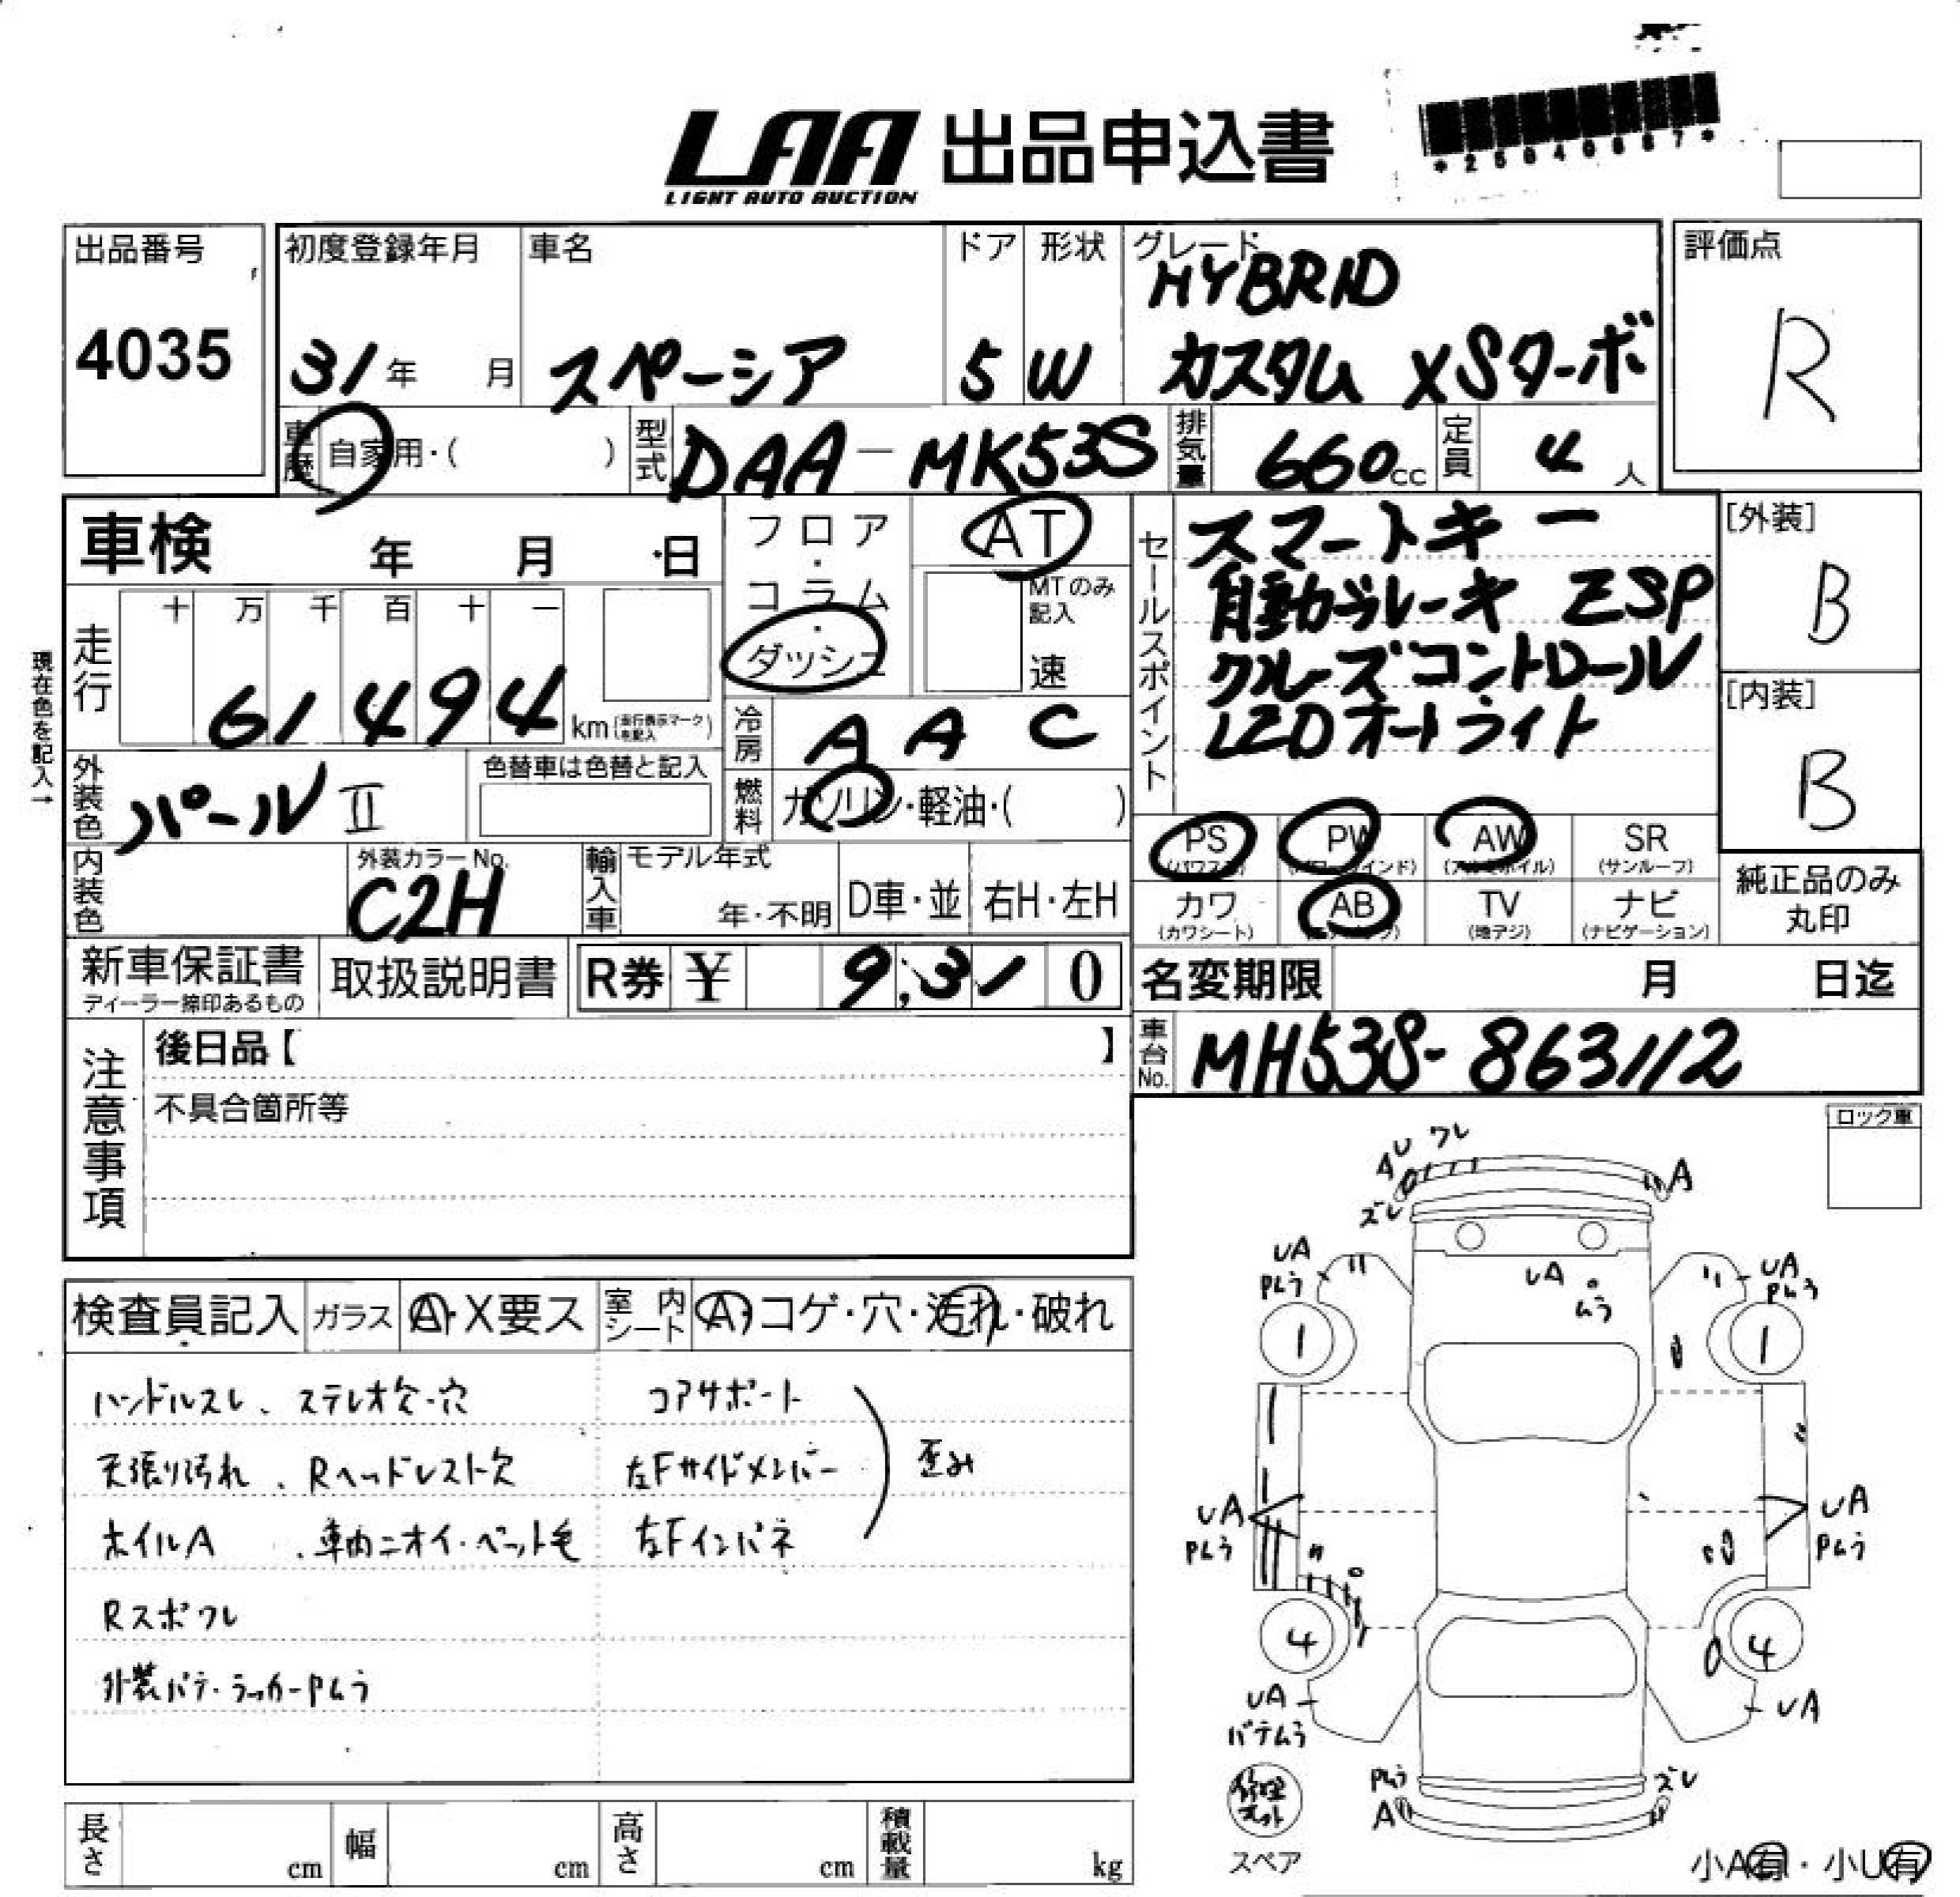 LAA 出品申込書
LIGHT AUTO AUCTION
*25040687*
出品番号
4035
初度登録年月
31年 月
車名
スペーシア
ドア
5
形状
W
グレード
HYBRID
カスタム XSターボ
評価点
R
車歴
自家用・( )
型式
DAA-MK53S
排気量
660cc
定員
4人
車検 年 月 日
フロア・コラム・ダッシュ
AT
MTのみ記入
速
セールスポイント
スマートキー
自動ブレーキ ESP
クルーズコントロール
LEDオートライト
[外装]
B
[内装]
B
現在色を記入→
走行
十 万 千 百 十 一
61494
km(走行表示マーク を記入)
冷房
AAC
燃料
ガソリン・軽油・( )
外装色
パールⅡ
色替車は色替と記入
内装色
外装カラーNo.
C2H
輸入車
モデル年式
年・不明
D車・並
右H・左H
PS
(パワステ)
PW
(パワーウインド)
AW
(アルミホイル)
SR
(サンルーフ)
カワ
(カワシート)
AB
(エアバッグ)
TV
(地デジ)
ナビ
(ナビゲーション)
純正品のみ
丸印
新車保証書
ディーラー捺印あるもの
取扱説明書
R券 ¥ 9,310
名変期限 月 日迄
車台No.
MH53S-863112
注意事項
後日品【 】
不具合箇所等
ロック車
検査員記入
ガラス
A・X要ス
室内シート
A・コゲ・穴・汚れ・破れ
ハンドルスレ、ステレオ欠・穴
天張り汚れ、Rヘッドレスト欠
ホイルA 、車内ニオイ・ペット毛
Rスポワレ
外装パテ・ラッカーPムラ
コアサポート
左Fサイドメンバー
左Fインパネ
歪み
ワレ
A
ズレ
UA
Pムラ
UA
ムラ
UA
Pムラ
1
1
UA
Pムラ
UA
Pムラ
4
4
UA
パテムラ
UA
Pムラ
A
ズレ
修理キット
スペア
小A有・小U有
長さ cm
幅 cm
高さ cm
積載量 kg